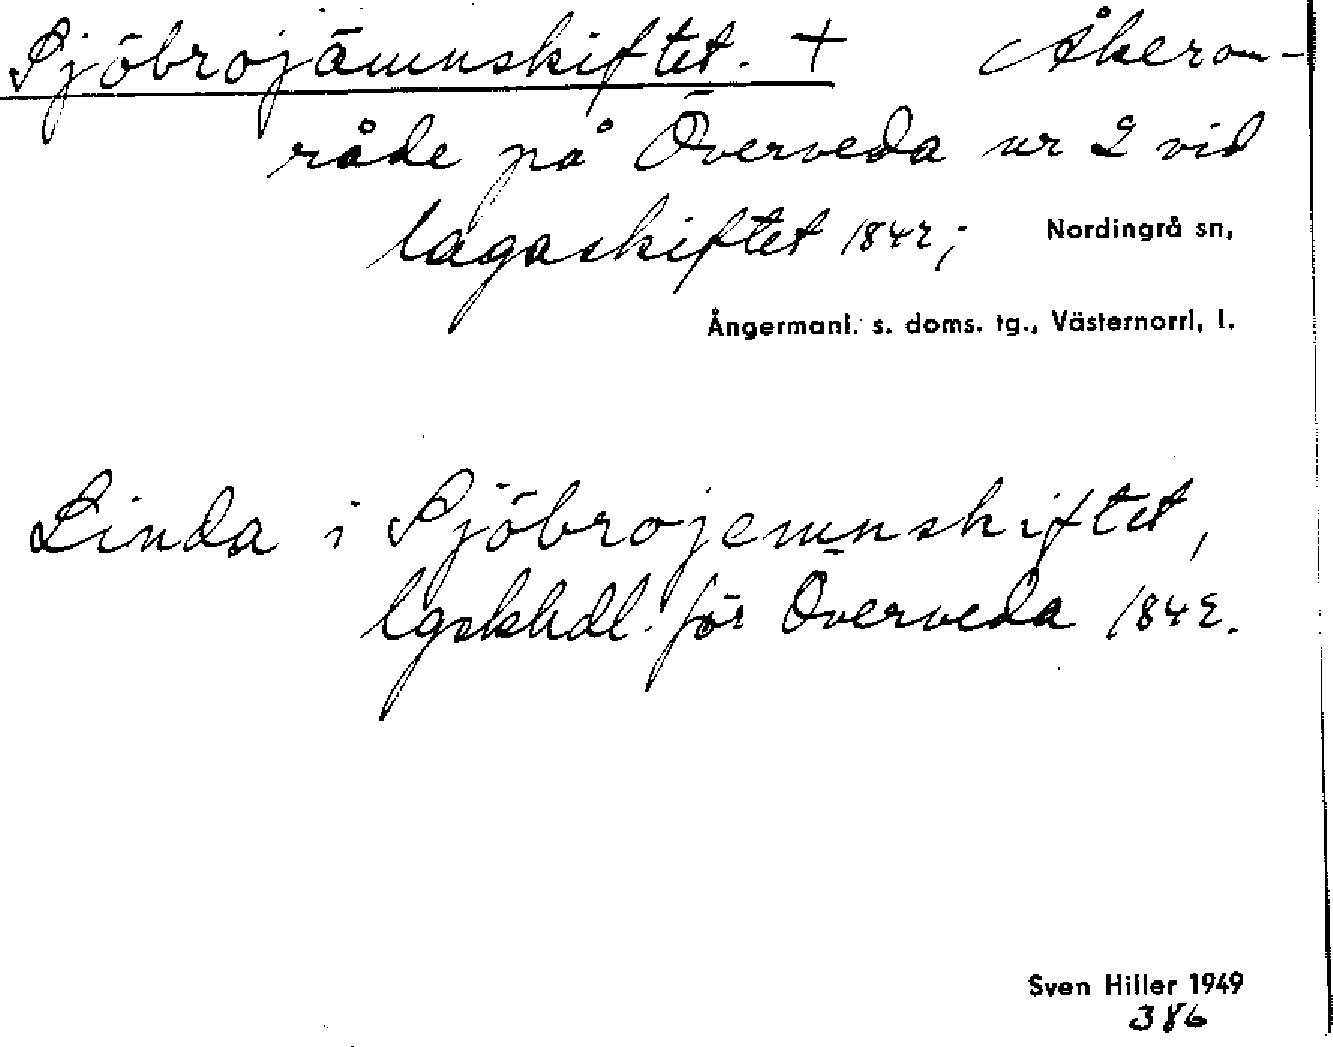 Sjöbrojämnskiftet. + Åkerom-
råde på Överveda nr 2 vid
lagaskiftet 1842; Nordingrå sn,
Ångermanl. s. doms. tg., Västernorrl, l.
Linda i Sjöbrojemnskiftet,
lgskhdl. för Överveda 1842.
Sven Hiller 1949
386